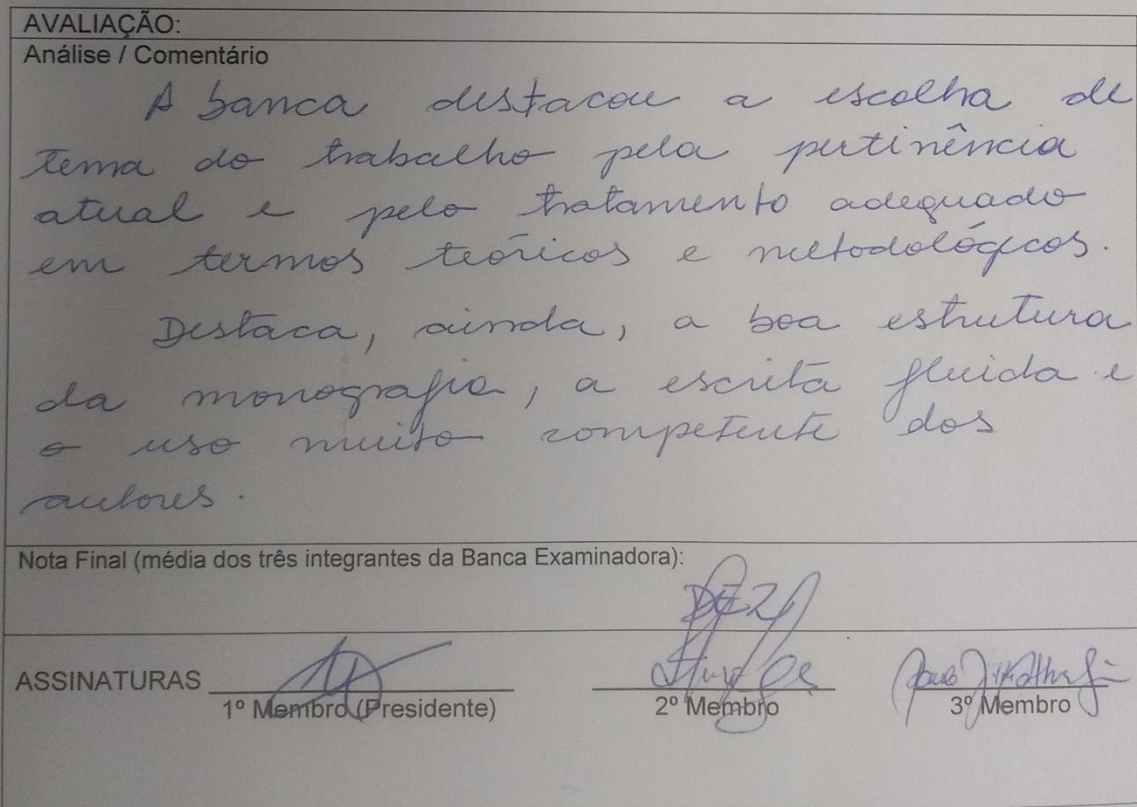 AVALIAÇÃO:
Análise / Comentário
A banca destacou a escolha de
tema do trabalho pela pertinência
atual e pelo tratamento adequado
em termos teóricos e metodológicos.
Destaca, ainda, a boa estrutura
da monografia, a escrita fluida e
o uso muito competente dos
autores.
Nota Final (média dos três integrantes da Banca Examinadora):
DEZ
ASSINATURAS
1º Membro (Presidente) 2º Membro 3º Membro